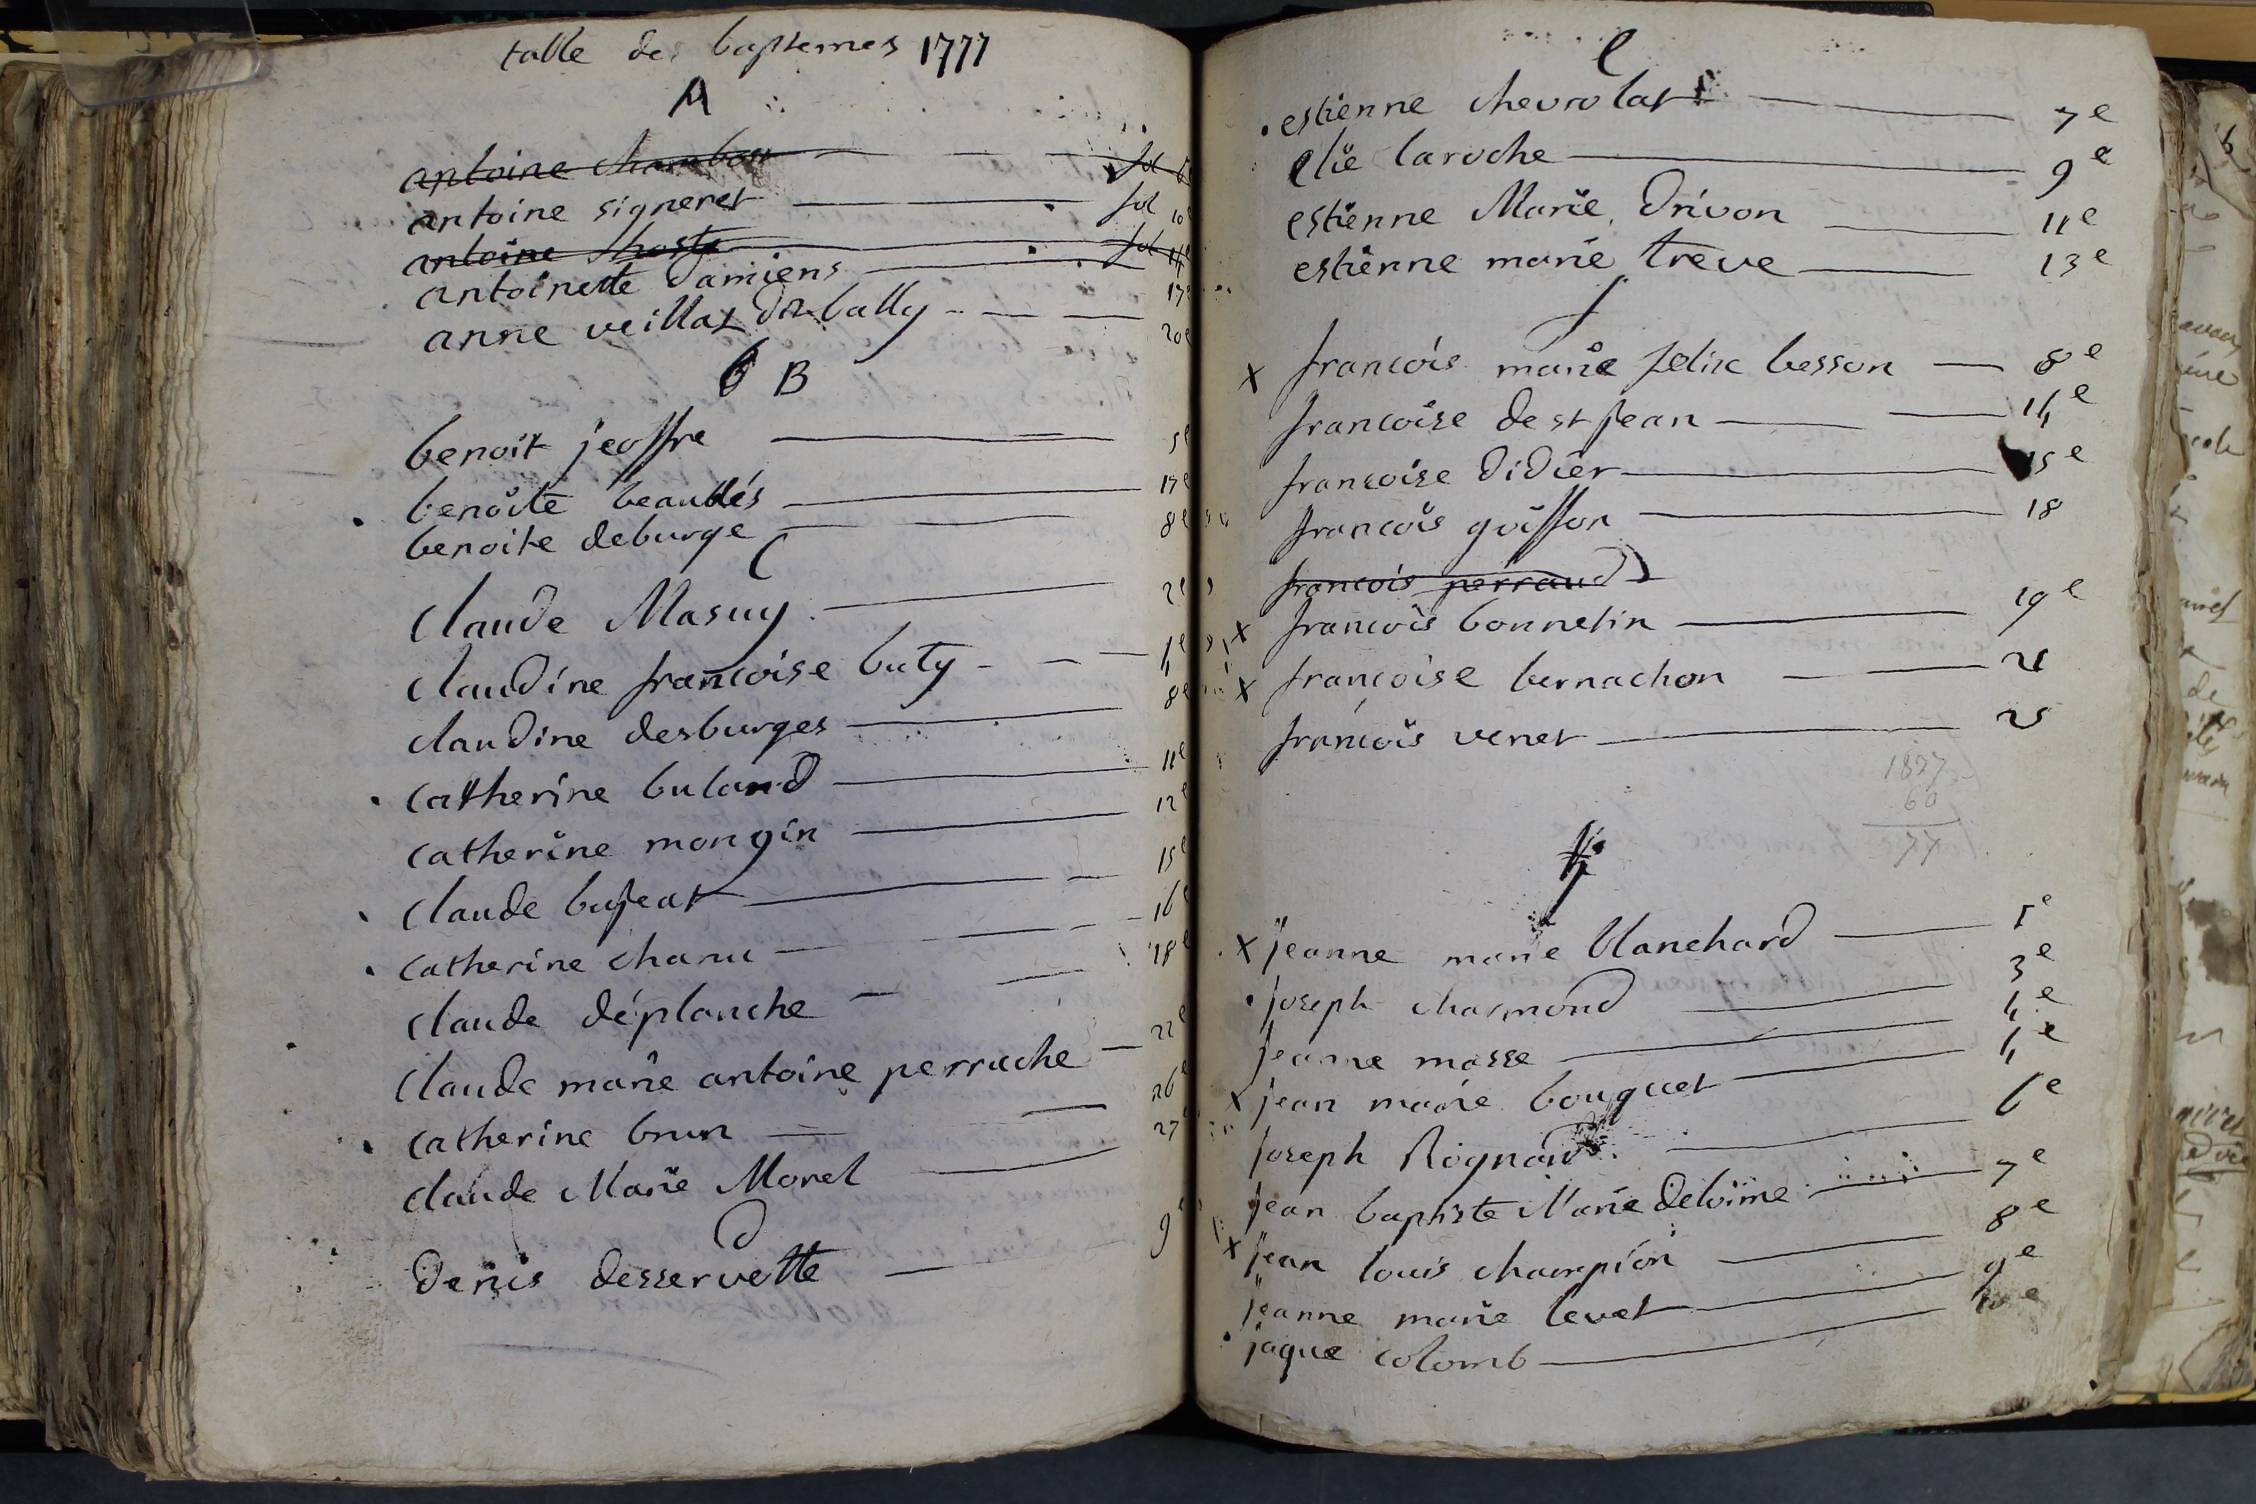 table des baptemes 1777
A
antoine chambon fol
antoine signeret fol 10e
antoine fol
antoinette damiens 17
anne veillas dit bally 20e
B
benoit jeoffre 5e
benoite beaudés 17e
benoite deburge 8e
C
claude Masuy 2e
claudine francoise buty 4e
claudine desburges 8e
catherine buland 11e
catherine mongin 12e
claude bajeat 15e
catherine charu 16e
claude déplanche 18e
claude marie antoine perrache 22e
catherine brun 26e
claude Marie Morel 27
D
denis desservette 9e
e
estienne chevrolat 7e
elie laroche 9e
estienne Marie drivon 11e
estienne marie treve 13e
f
x francois marie felix besson 8e
francoise de st jean 14e
francoise didier 15e
francois guiffon 18
francois perraud
x francois bonnetin 19e
x francoise bernachon 21
francois venet 25
1837
60
77
J
x jeanne marie blanchard 1e
joseph charmond 3e
jeanne masse 4e
x jean marie bouquet 4e
joseph Rognard 6e
jean baptiste Marie deloime 7e
x jean louis champion 8e
jeanne marie levet 9e
jaque colomb 10e